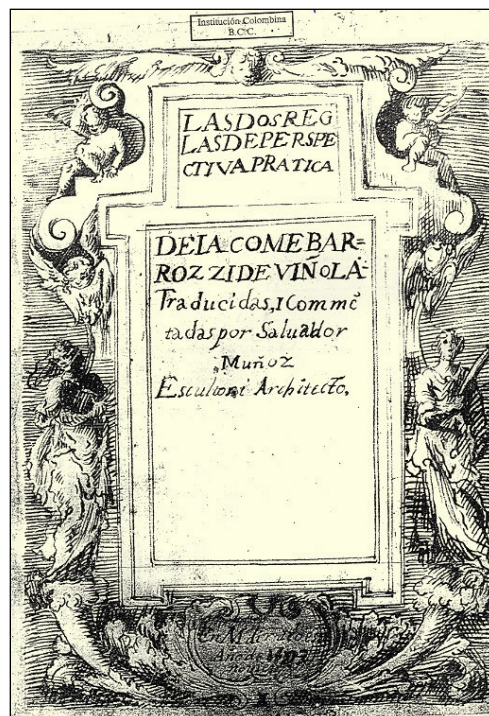 Institución Colombina
B.C.C.
LAS DOS REG
LAS DE PERSPE
CTIVA PRATICA
DE IACOME BAR=
ROZZI DE VIÑOLA
Traducidas, i Commē
tadas por Saluador
Muñoz
Escultor i Architecto,
En Madrid
Año de